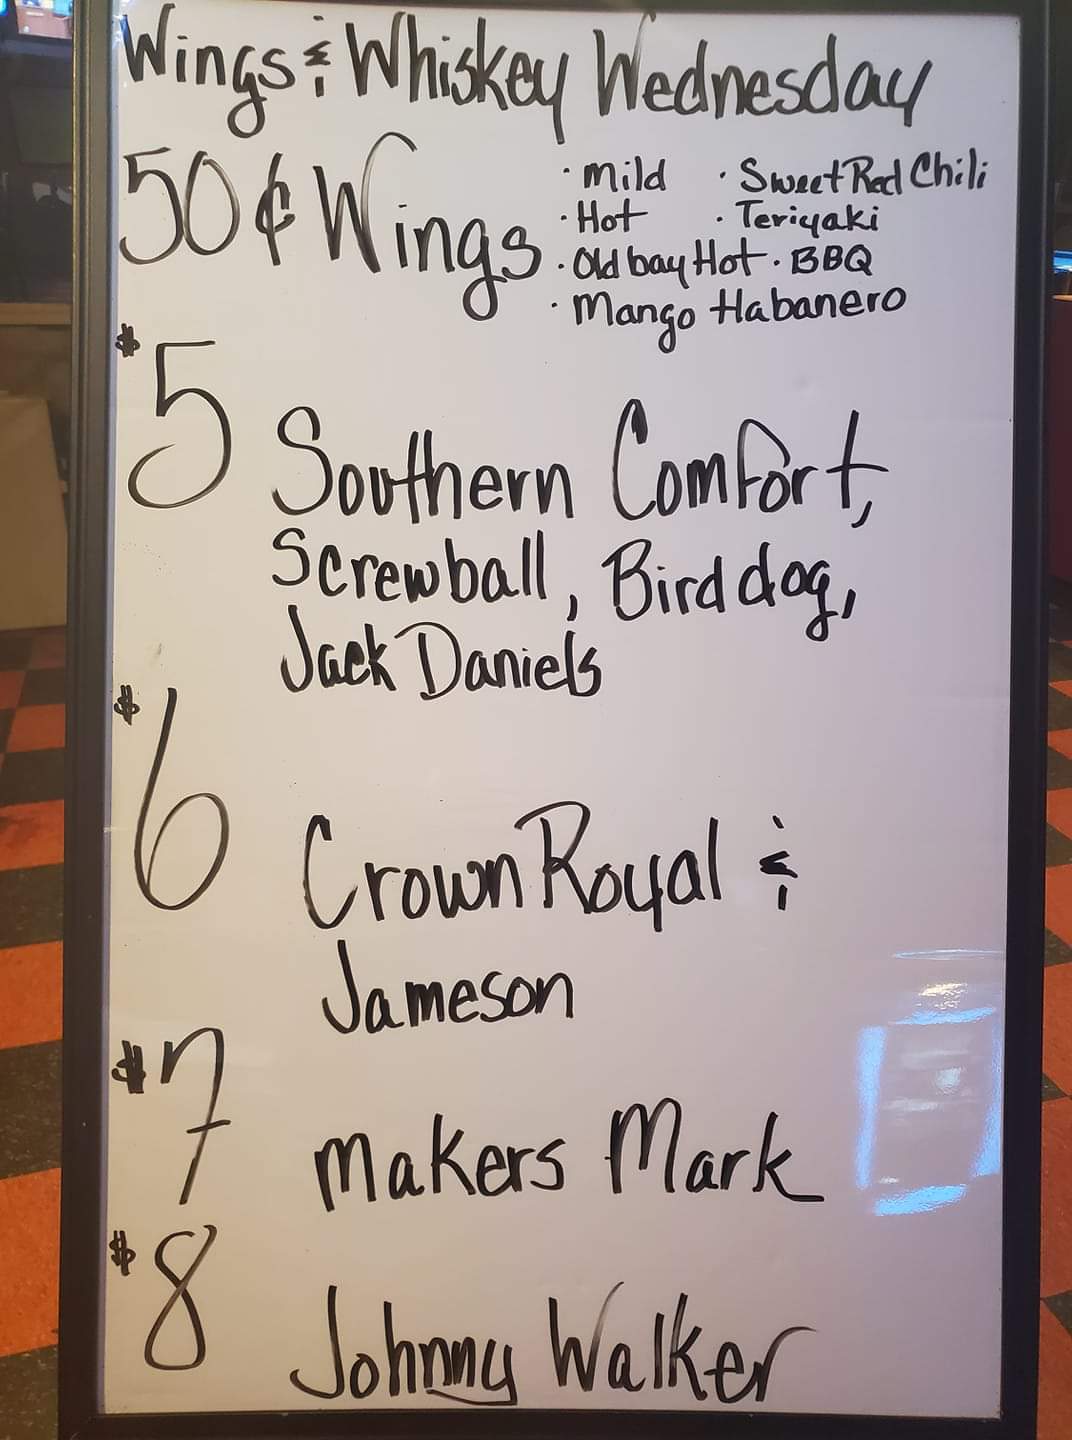 Wings & Whiskey Wednesday
50¢ Wings
· Mild · Sweet Red Chili
· Hot · Teriyaki
· Old bay Hot · BBQ
· Mango Habanero
$5 Southern Comfort,
Screwball, Bird dog,
Jack Daniel's
$6 Crown Royal &
Jameson
$7 Makers Mark
$8 Johnny Walker